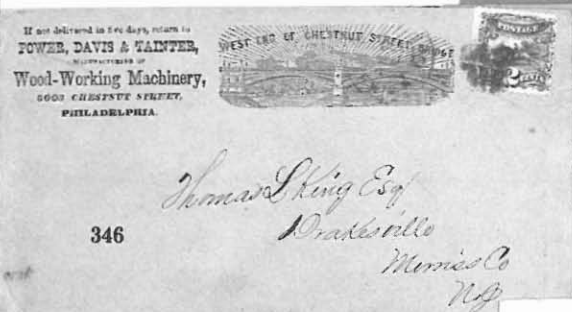 If not delivered in five days, return to
POWER, DAVIS & TAINTER,
MANUFACTURERS OF
Wood-Working Machinery,
CHESTNUT STREET,
PHILADELPHIA.
WEST END OF CHESTNUT STREET BRIDGE
POSTAGE
2 CENTS
Thomas L King Esq
Drakesville
Morriss Co
NJ
346